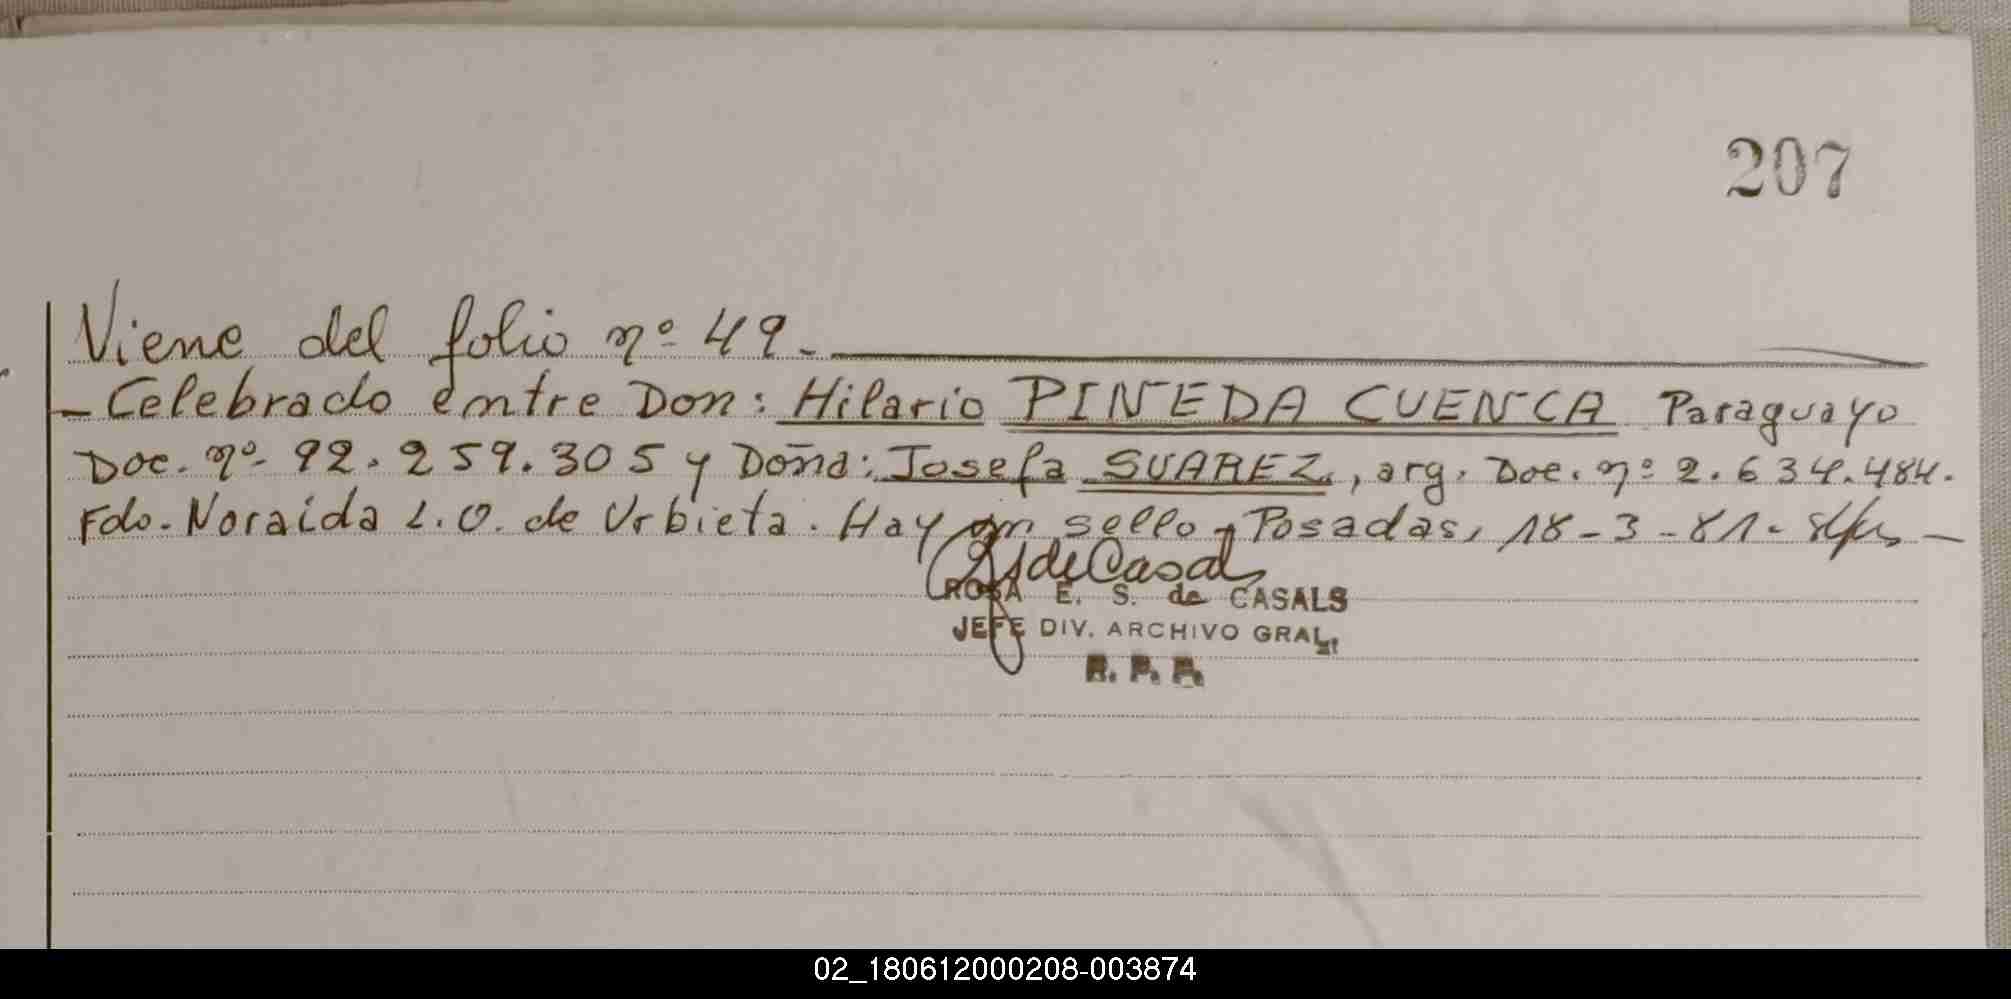 207
Viene del folio nº 49.
- Celebrado entre Don: Hilario PINEDA CUENCA Paraguayo
Doc. nº 92.259.305 y Doña: Josefa SUAREZ, arg. Doc. nº 2.634.484.
Fdo. Noraida L.O. de Urbieta. Hay un sello - Posadas, 18-3-81-
ROSA E. S. de CASALS
JEFE DIV. ARCHIVO GRAL.
R. P. P.
02_180612000208-003874